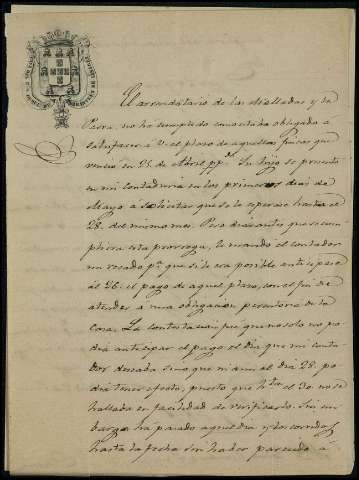 El arrendatario de las Malladas y la
no ha cumplido como estaba obligado á
satisfacer á V. el plazo de aquellas fincas que
vencio en 25 de Abril pp.do Su hijo se presentó
en mi contaduria en los primeros dias de
Mayo a solicitar que se le esperase hasta el
28 del mismo mes. Pero dias antes que se cum
pliera esta prorroga, le mandó el contador
un recado p.a que si le era posible anticipase
al 26 el pago de aquel plazo, con el fin de
atender á una obligacion perentoria de la
Casa. La contestacion fue que no solo no po
dia anticipar el pago el dia que mi conta
dor deseaba sino que ni aun el dia 28 po
dia tener efecto, puesto que h.ta el 30 no se
hallaba en facilidad de verificarlo. Sin em
bargo ha pasado aquel dia y los corridos
hasta la fecha sin haber parecido á